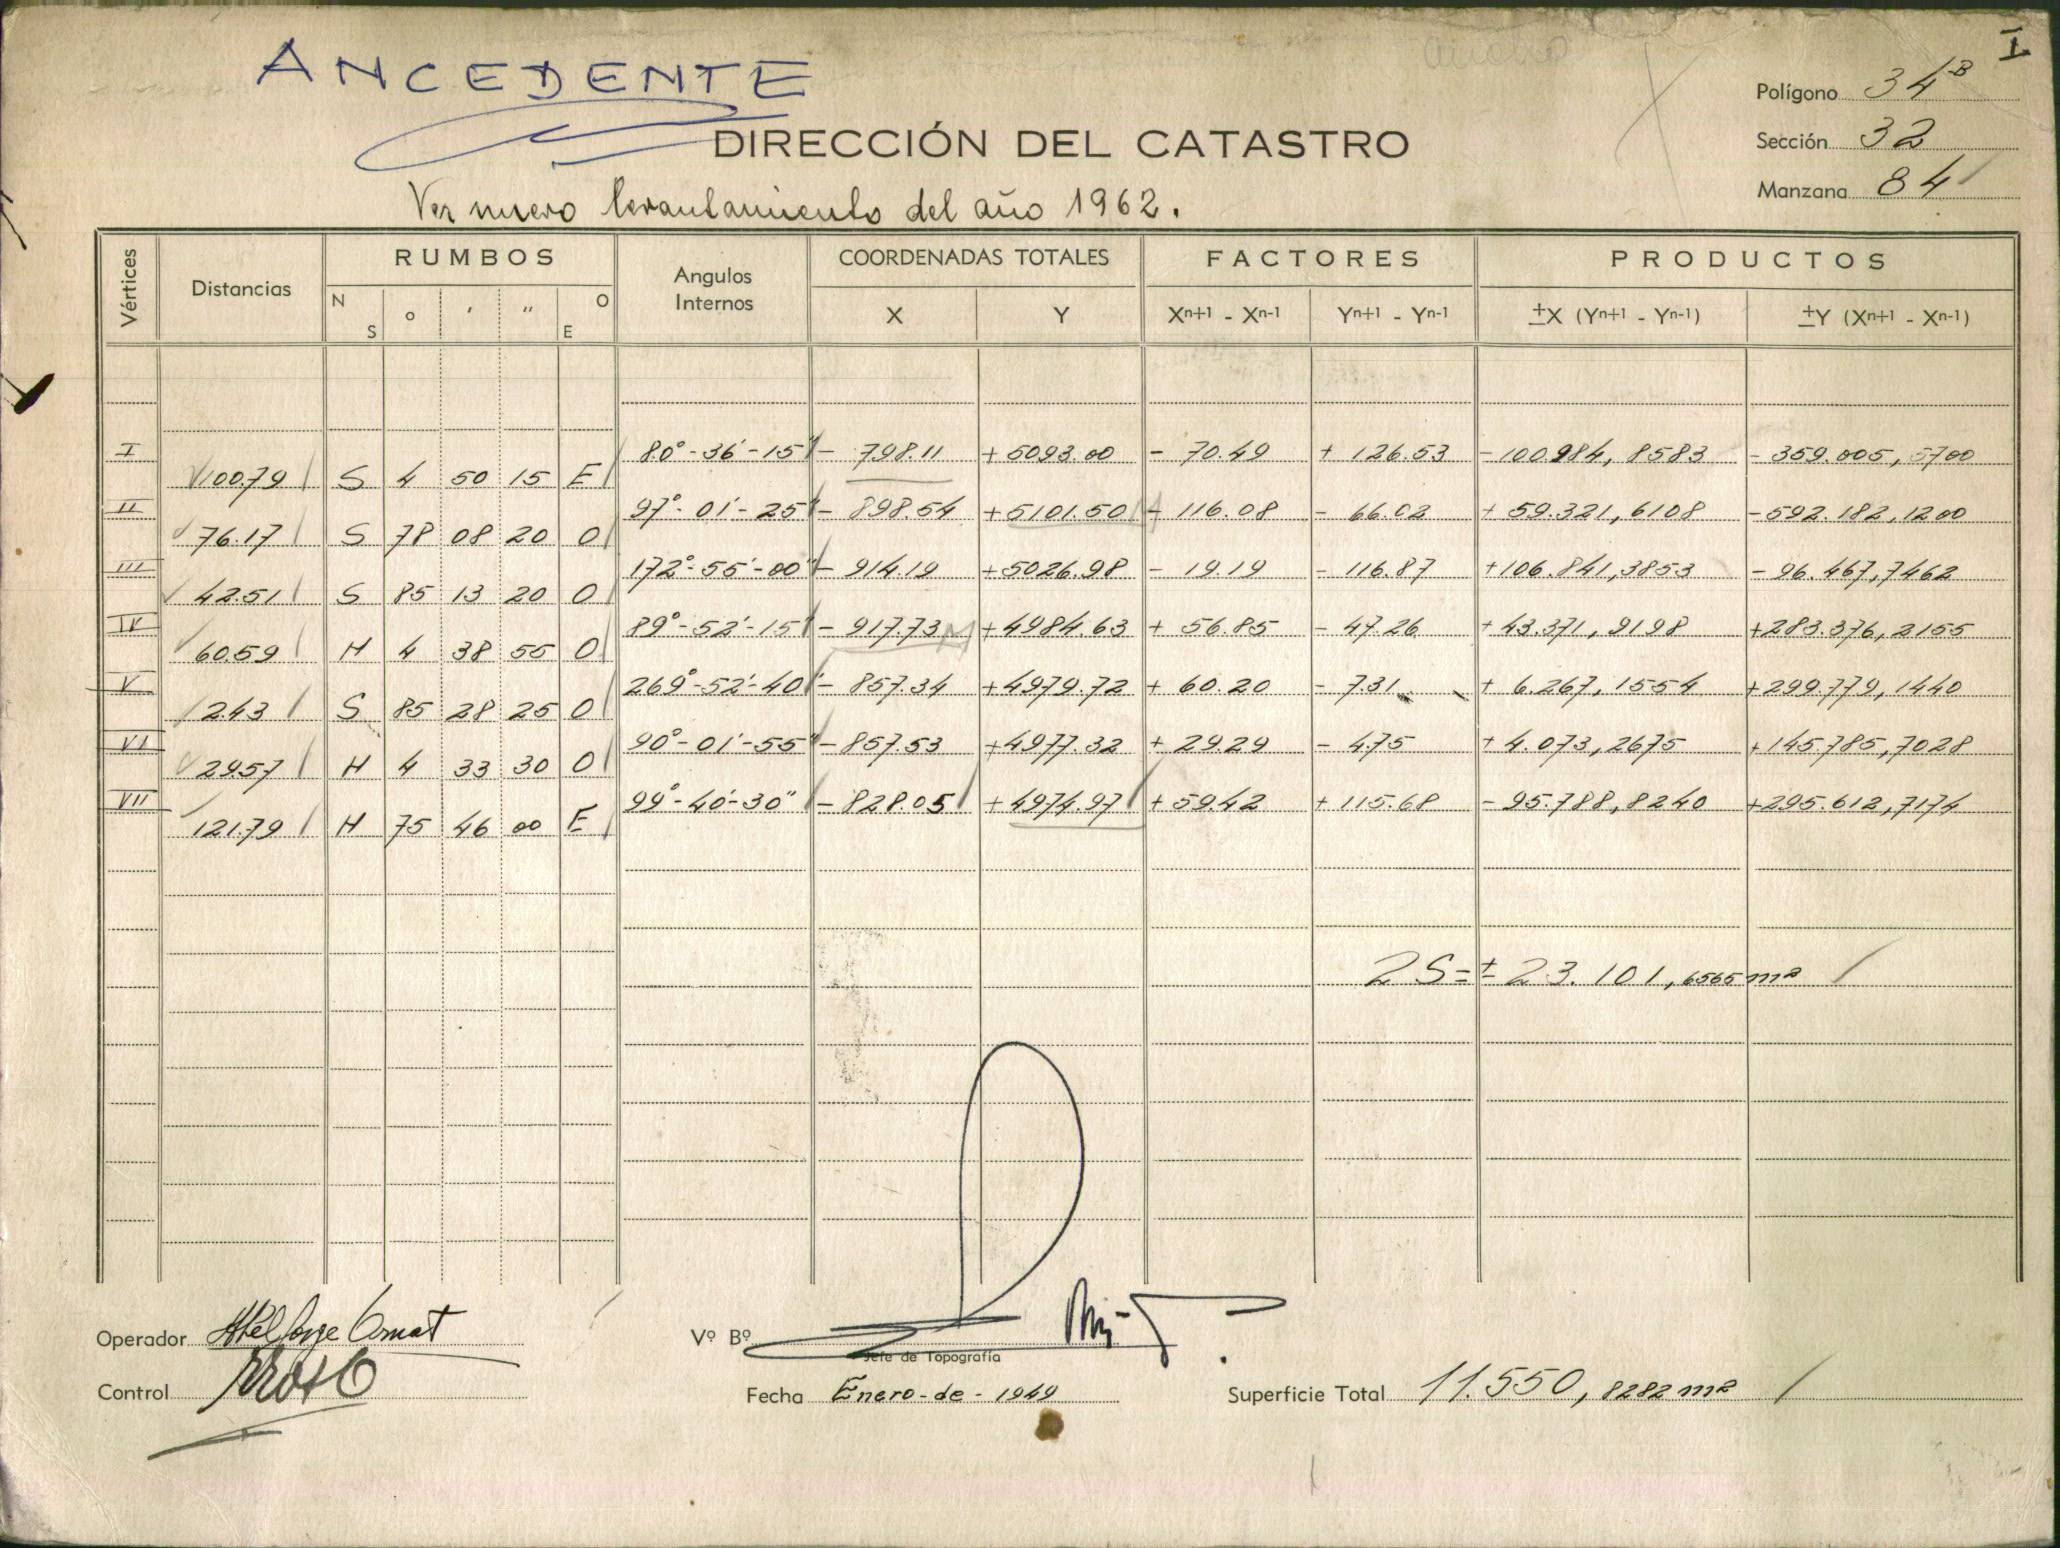 I
ANCEDENTE
Polígono 34-B
DIRECCIÓN DEL CATASTRO
Sección 32
Ver nuevo levantamiento del año 1962.
Manzana 84
Vértices Distancias RUMBOS Angulos Internos COORDENADAS TOTALES FACTORES PRODUCTOS
N S ° ′ ″ O E X Y Xn+1 - Xn-1 Yn+1 - Yn-1 ±X (Yn+1 - Yn-1) ±Y (Xn+1 - Xn-1)
I 80°-36'-15" - 798.11 +5093.00 - 70.49 + 126.53 -100.984,8583 -359.005,5700
100.79 S 4 50 15 E
II 97°-01'-25" - 898.54 +5101.50 - 116.08 - 66.02 +59.321,6108 -592.182,1200
76.17 S 78 08 20 O
III 172°-55'-00" - 914.19 +5026.98 - 19.19 - 116.87 +106.841,3853 -96.467,7462
42.51 S 85 13 20 O
IV 89°-52'-15" - 917.73 +4984.63 + 56.85 - 47.26 +43.371,9198 +283.376,2155
60.59 N 4 38 55 O
V 269°-52'-40" - 857.34 +4979.72 + 60.20 - 7.31 + 6.267,1554 +299.779,1440
2.43 S 85 28 25 O
VI 90°-01'-55" - 857.53 +4977.32 + 29.29 - 4.75 + 4.073,2675 +145.785,7028
29.57 N 4 33 30 O
VII 99°-40'-30" - 828.05 +4974.97 + 59.42 + 115.68 -95.788,8240 +295.612,7174
121.79 N 75 46 00 E
2S=±23.101,6565 m2
Operador
Vº Bº
Jefe de Topografía
Control
Fecha Enero-de-1949
Superficie Total 11.550,8282 m2